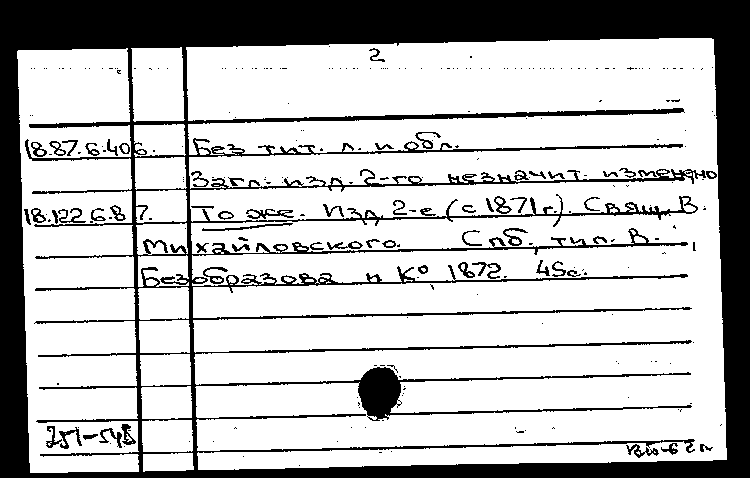 2
18.87.6.406. Без тит. л. и обл.
Загл. изд. 2-го незначит. изменено
18.122.6.87. То же. Изд. 2-е (с 1871 г.). Свящ. В.
Михайловского. Спб., тип. В.
Безобразова и К°, 1872. 45с.
251-548